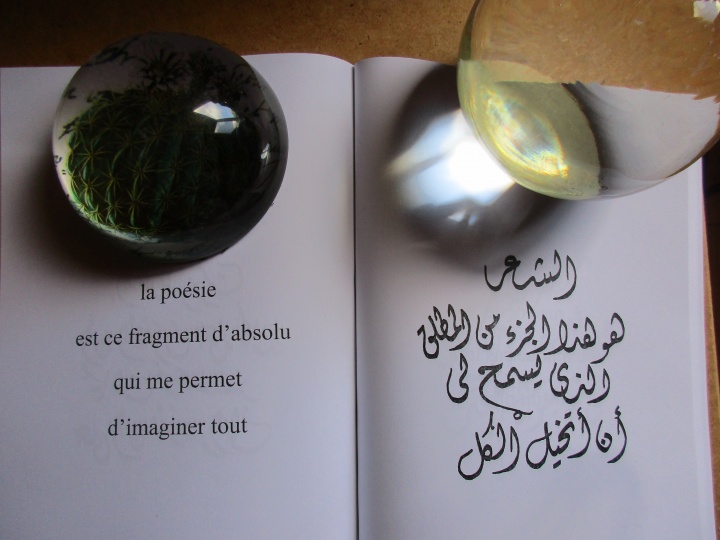 la poésie
est ce fragment d'absolu
qui me permet
d'imaginer tout
الشعر
هو هذا الجزء من المطلق
الذي يسمح لي
أن أتخيل الكل